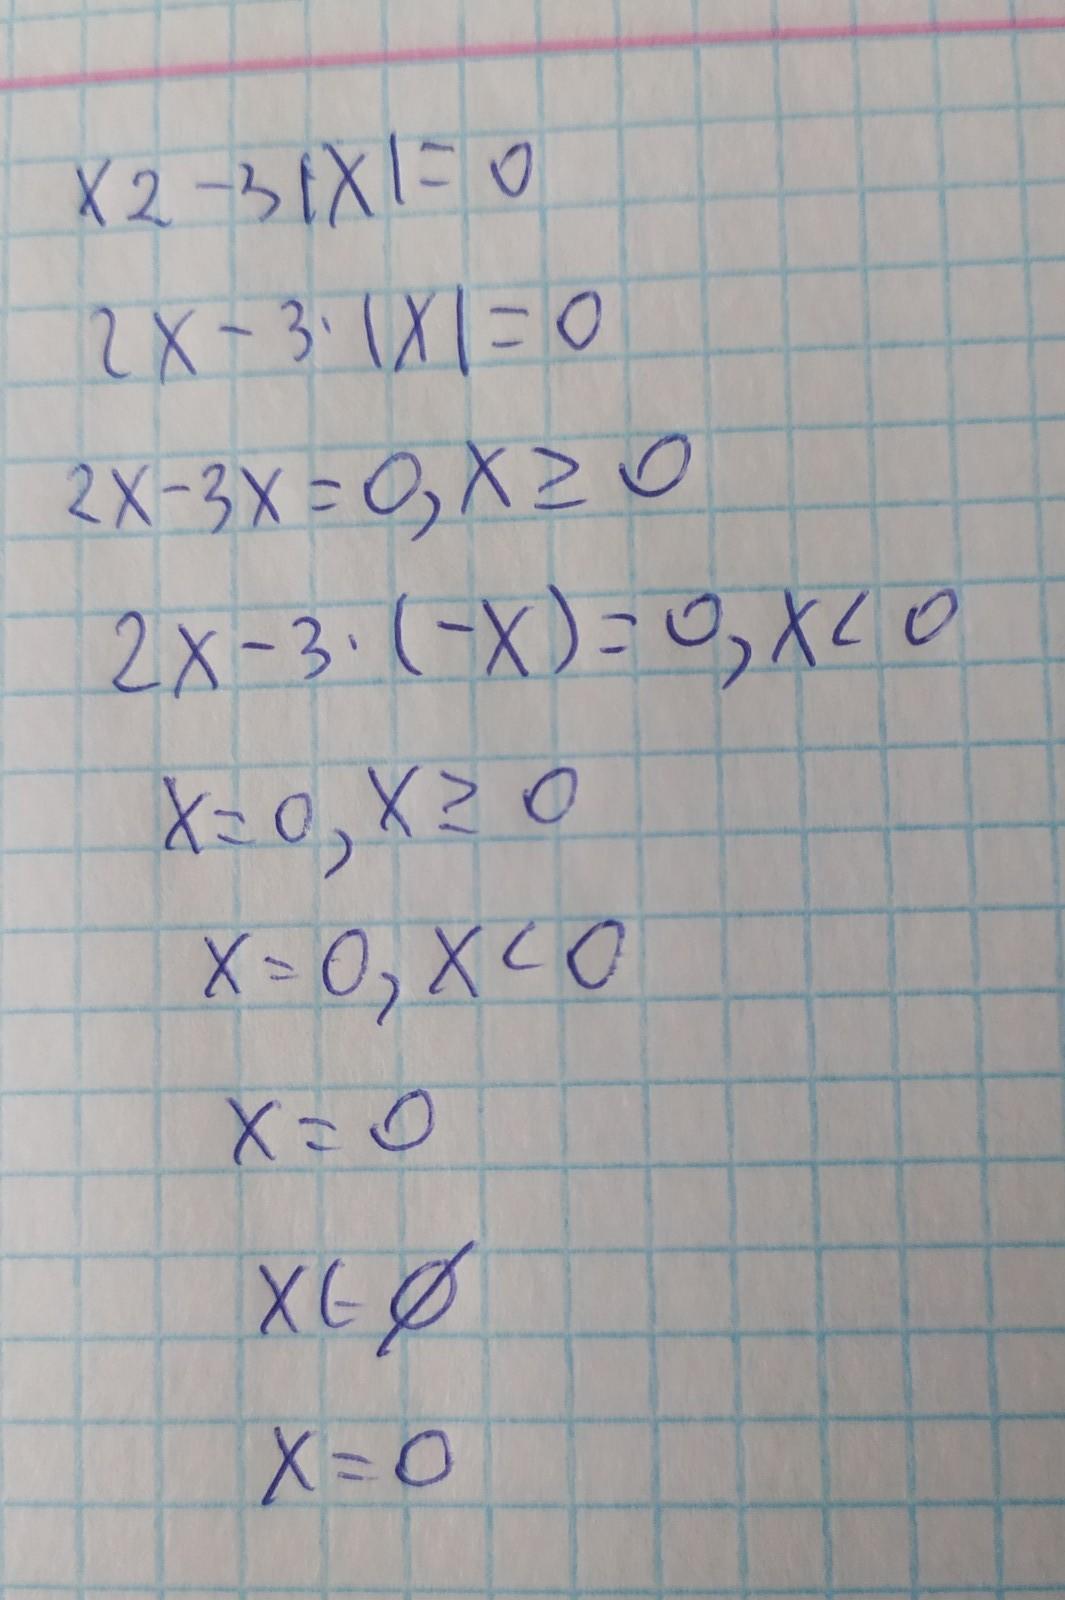 x2-3|x|=0
2x-3·|x|=0
2x-3x=0, x≥0
2x-3·(-x)=0, x<0
x=0, x≥0
x=0, x<0
x=0
x∈∅
x=0